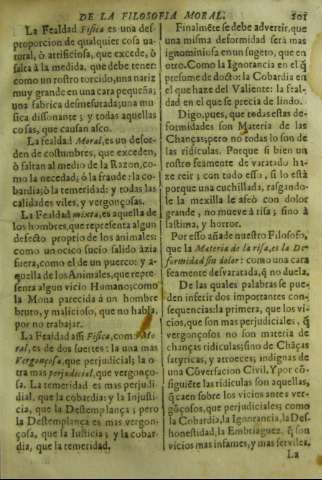 DE LA FILOSOFIA MORAL. 201
La Fealdad Fisica es una des-
proporcion de qualquier cosa na-
tural, ò artificiosa, que excede, ò
falta à la medida, que debe tener:
como un rostro torcido, una nariz
muy grande en una cara pequeña;
una fabrica desmesurada; una mu-
sica dissonante; y todas aquellas
cosas, que causan asco.
La fealdad Moral, es un desor-
den de costumbres, que exceden,
ò faltan al medio de la Razon, co-
mo la necedad, ò la fraude: la co-
bardia; ò la temeridad: y todas las
calidades viles, y vergonçosas.
La Fealdad mixta, es aquella de
los hombres, que representa algun
defecto proprio de los animales:
como un ocico sucio salido àzia
fuera, como el de un puerco: y a-
quella de los Animales, que repre-
senta algun vicio Humano; como
la Mona parecida à un hombre
bruto, y malicioso, que no habla,
por no trabajar.
La Fealdad assi Fisica, como Mo-
ral, es de dos suertes: la una mas
Vergonçosa, que perjudicial; la o-
tra mas perjudicial, que vergonço-
sa. La temeridad es mas perjudi-
dial, que la cobardia: y la Injusti-
cia, que la Destemplança; pero
la Destemplança es mas vergon-
çosa, que la Iusticia; y la cobar-
dia, que la temeridad.
Finalmẽte se debe advertir, que
una misma deformidad serà mas
ignominiosa en un sugeto, que en
otro. Como la Ignorancia en el q̃
presume de docto: la Cobardia en
el que haze del Valiente: la feal-
dad en el que se precia de lindo.
Digo, pues, que todas estas de-
formidades son Materia de las
Chanças; pero no todas lo son de
las ridiculas. Porque si bien un
rostro feamente de varatado ha-
ze reir; con todo esso, si lo està
porque una cuchillada, rasgando-
le la mexilla le afeò con dolor
grande, no mueve à risa; sino à
lastima, y horror.
Por esso añade nuestro Filosofo,
que la Materia de la risa, es la De-
formidad sin dolor: como una cara
feamente desvaratada, q̃ no duela.
De las quales palabras se pue-
den inferir dos importantes con-
sequencias: la primera, que los vi-
cios, que son mas perjudiciales, q̃
vergonçosos no son materia de
chanças ridiculas; sino de Chãças
satyricas, y atroces; indignas de
una Cõversacion Civil. Y por cõ-
siguiẽte las ridiculas son aquellas,
q̃ caen sobre los vicios antes ver-
gõçosos, que perjudiciales; como
la Cobardia, la Ignorancia, la Des-
honestidad, la Embriaguez. q̃ son
vicios mas infames, y mas serviles.
La